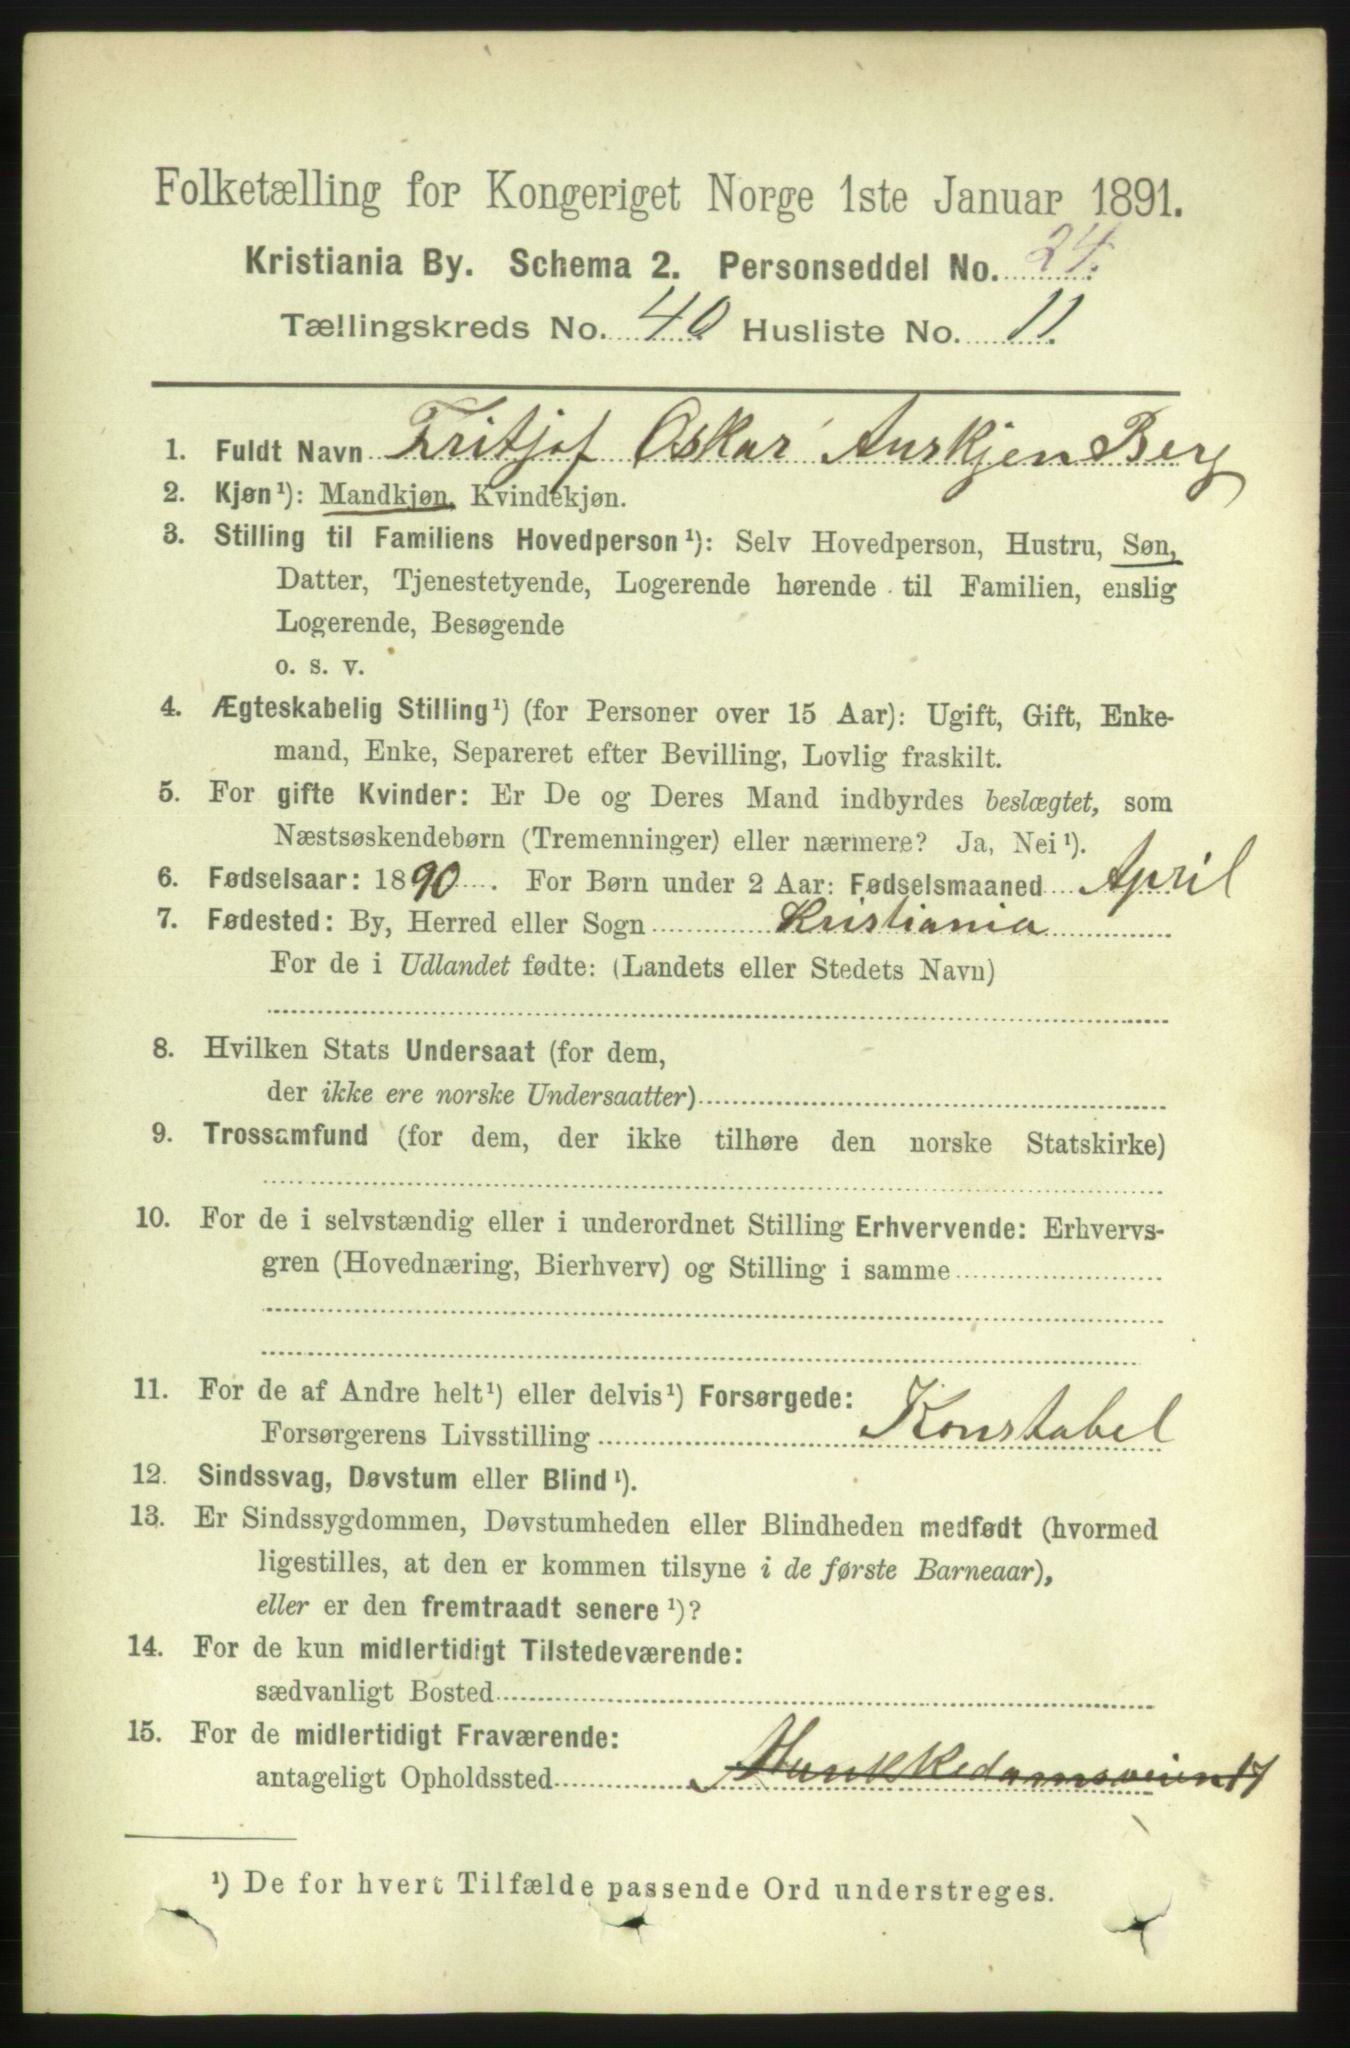 Folketælling for Kongeriget Norge 1ste Januar 1891.
Kristiania By. Schema 2. Personseddel No. 24.
Tællingskreds No. 40 Husliste No. 11.
1. Fuldt Navn Fritjof Oskar Aurkjen Berg
2. Kjøn¹): Mandkjøn, Kvindekjøn.
3. Stilling til Familiens Hovedperson¹): Selv Hovedperson, Hustru, Søn,
Datter, Tjenestetyende, Logerende hørende til Familien, enslig
Logerende, Besøgende
o. s. v.
4. Ægteskabelig Stilling¹) (for Personer over 15 Aar): Ugift, Gift, Enke-
mand, Enke, Separeret efter Bevilling, Lovlig fraskilt.
5. For gifte Kvinder: Er De og Deres Mand indbyrdes beslægtet, som
Næstsøskendebørn (Tremenninger) eller nærmere? Ja, Nei¹).
6. Fødselsaar: 1890. For Børn under 2 Aar: Fødselsmaaned April
7. Fødested: By, Herred eller Sogn Kristiania
For de i Udlandet fødte: (Landets eller Stedets Navn)
8. Hvilken Stats Undersaat (for dem,
der ikke ere norske Undersaatter)
9. Trossamfund (for dem, der ikke tilhøre den norske Statskirke)
10. For de i selvstændig eller i underordnet Stilling Erhvervende: Erhvervs-
gren (Hovednæring, Bierhverv) og Stilling i samme
11. For de af Andre helt¹) eller delvis¹) Forsørgede:
Forsørgerens Livsstilling Konstabel
12. Sindssvag, Døvstum eller Blind¹).
13. Er Sindssygdommen, Døvstumheden eller Blindheden medfødt (hvormed
ligestilles, at den er kommen tilsyne i de første Barneaar),
eller er den fremtraadt senere¹)?
14. For de kun midlertidigt Tilstedeværende:
sædvanligt Bosted
15. For de midlertidigt Fraværende:
antageligt Opholdssted Munkkedamsveien 17
¹) De for hvert Tilfælde passende Ord understreges.